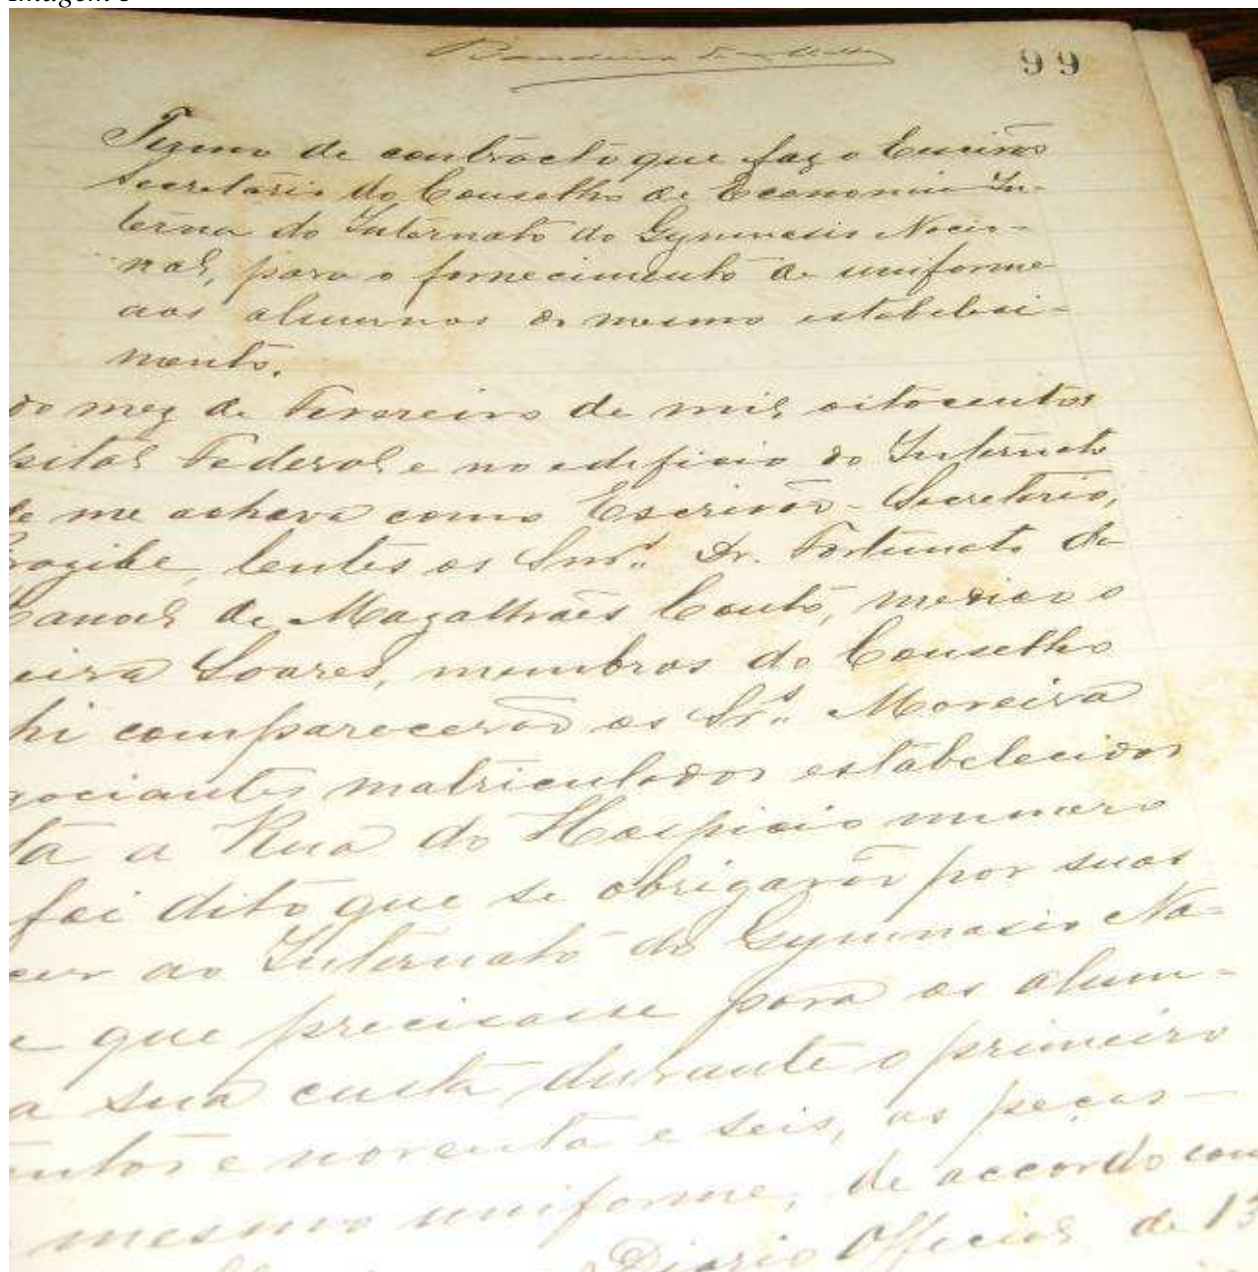 99
Termo de contracto que faz o Escrivão
Secretario do Conselho de Economia In-
terna do Internato do Gymnasio Nacio-
nal, para o fornecimento de uniforme
aos alumnos do mesmo estabeleci-
mento.
do mez de Fevereiro de mil oitocentos
pital Federal e no edificio do Internato
de me achava como Escrivão-Secretario,
lentes os Snrs. Dr. Fortunato da
anoel de Magalhães Couto, medico o
eira Soares, membros do Conselho
hi comparecerão os Srs. Moreira
gociantes matriculados estabelecidos
ta a Rua do Hospicio numero
foi dito que se obrigavão por suas
cer ao Internato do Gymnasio Na=
e que precisasse para os alum=
a sua custa durante o primeiro
entos e noventa e seis, as peças
mesmo uniforme, de accordo com
Diario Official de 13